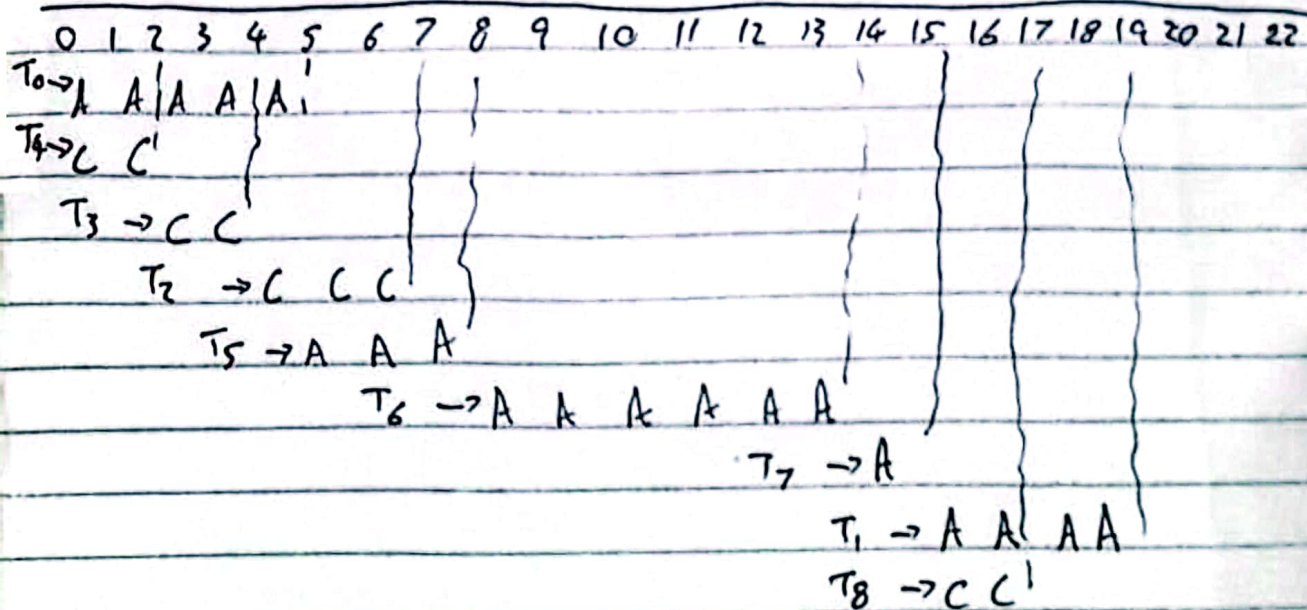 0 1 2 3 4 5 6 7 8 9 10 11 12 13 14 15 16 17 18 19 20 21 22
T0→A A A A A
T4→C C
T3 → C C
T2 → C C C
T5 → A A A
T6 → A A A A A A
T7 → A
T1 → A A A A
T8 → C C